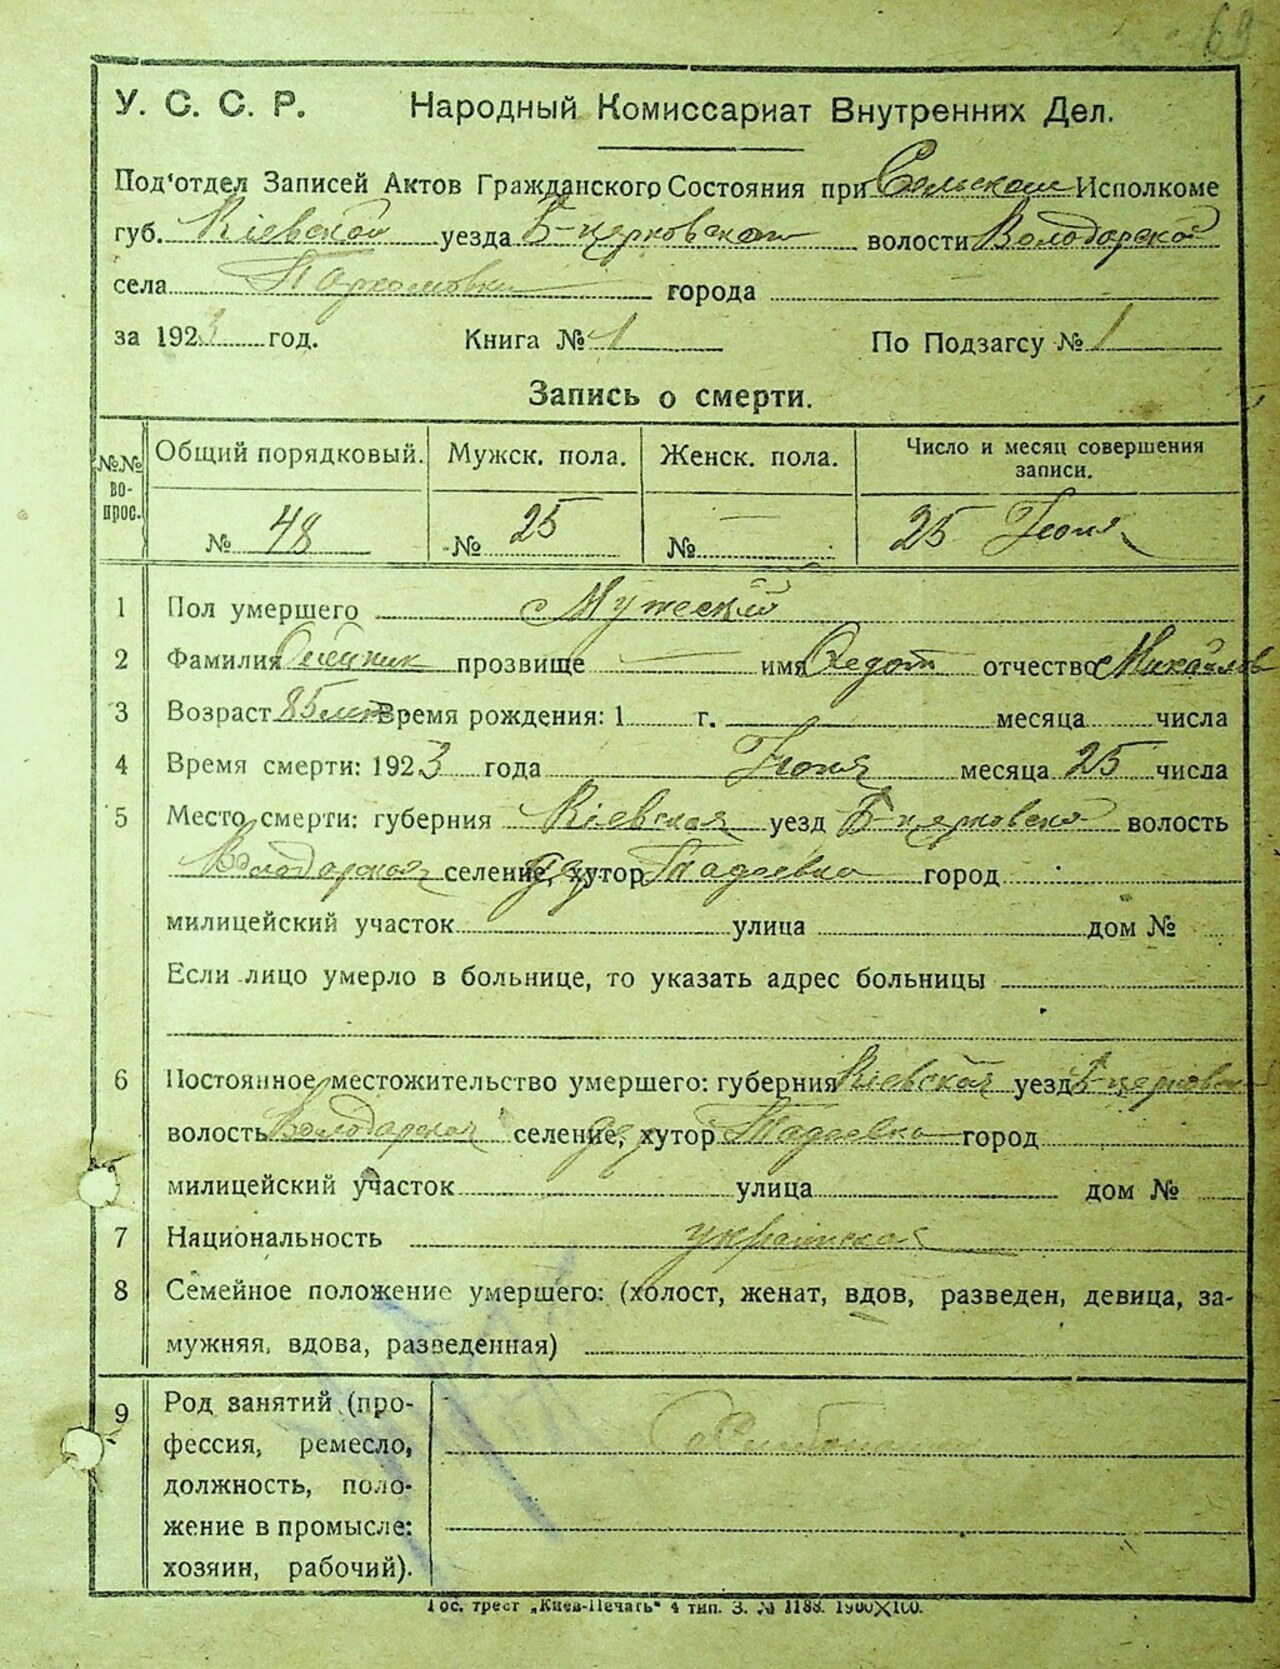 69
У. С. С. Р. Народный Комиссариат Внутренних Дел.
Под'отдел Записей Актов Гражданского Состояния при Сельском Исполкоме
губ. Кіевской уезда Б-церковском волости Володарской
села Пархомовки города
за 1923 год. Книга № 1 По Подзагсу № 1
Запись о смерти.
№№ во- прос. Общий порядковый. Мужск. пола. Женск. пола. Число и месяц совершения записи.
№ 48 № 25 № — 25 Іюня
1 Пол умершего Мужеский
2 Фамилия Олейник прозвище — имя Федот отчество Михайлов
3 Возраст 85 лет Время рождения: 1 г. месяца числа
4 Время смерти: 1923 года Іюня месяца 25 числа
5 Место смерти: губерния Кіевская уезд Б-церковско волость
Володарская селение, хутор Тадеевка город
милицейский участок улица дом №
Если лицо умерло в больнице, то указать адрес больницы
6 Постоянное местожительство умершего: губерния Кіевская уезд Б-церковск
волость Володарская селение, хутор Тадеевка город
милицейский участок улица дом №
7 Национальность украинская
8 Семейное положение умершего: (холост, женат, вдов, разведен, девица, за-
мужняя, вдова, разведенная)
9 Род занятий (про-
фессия, ремесло,
должность, поло-
жение в промысле:
хозяин, рабочий).
Гос. трест „Киев-Печать“ 4 тип. З. № 1188. 1900X100.